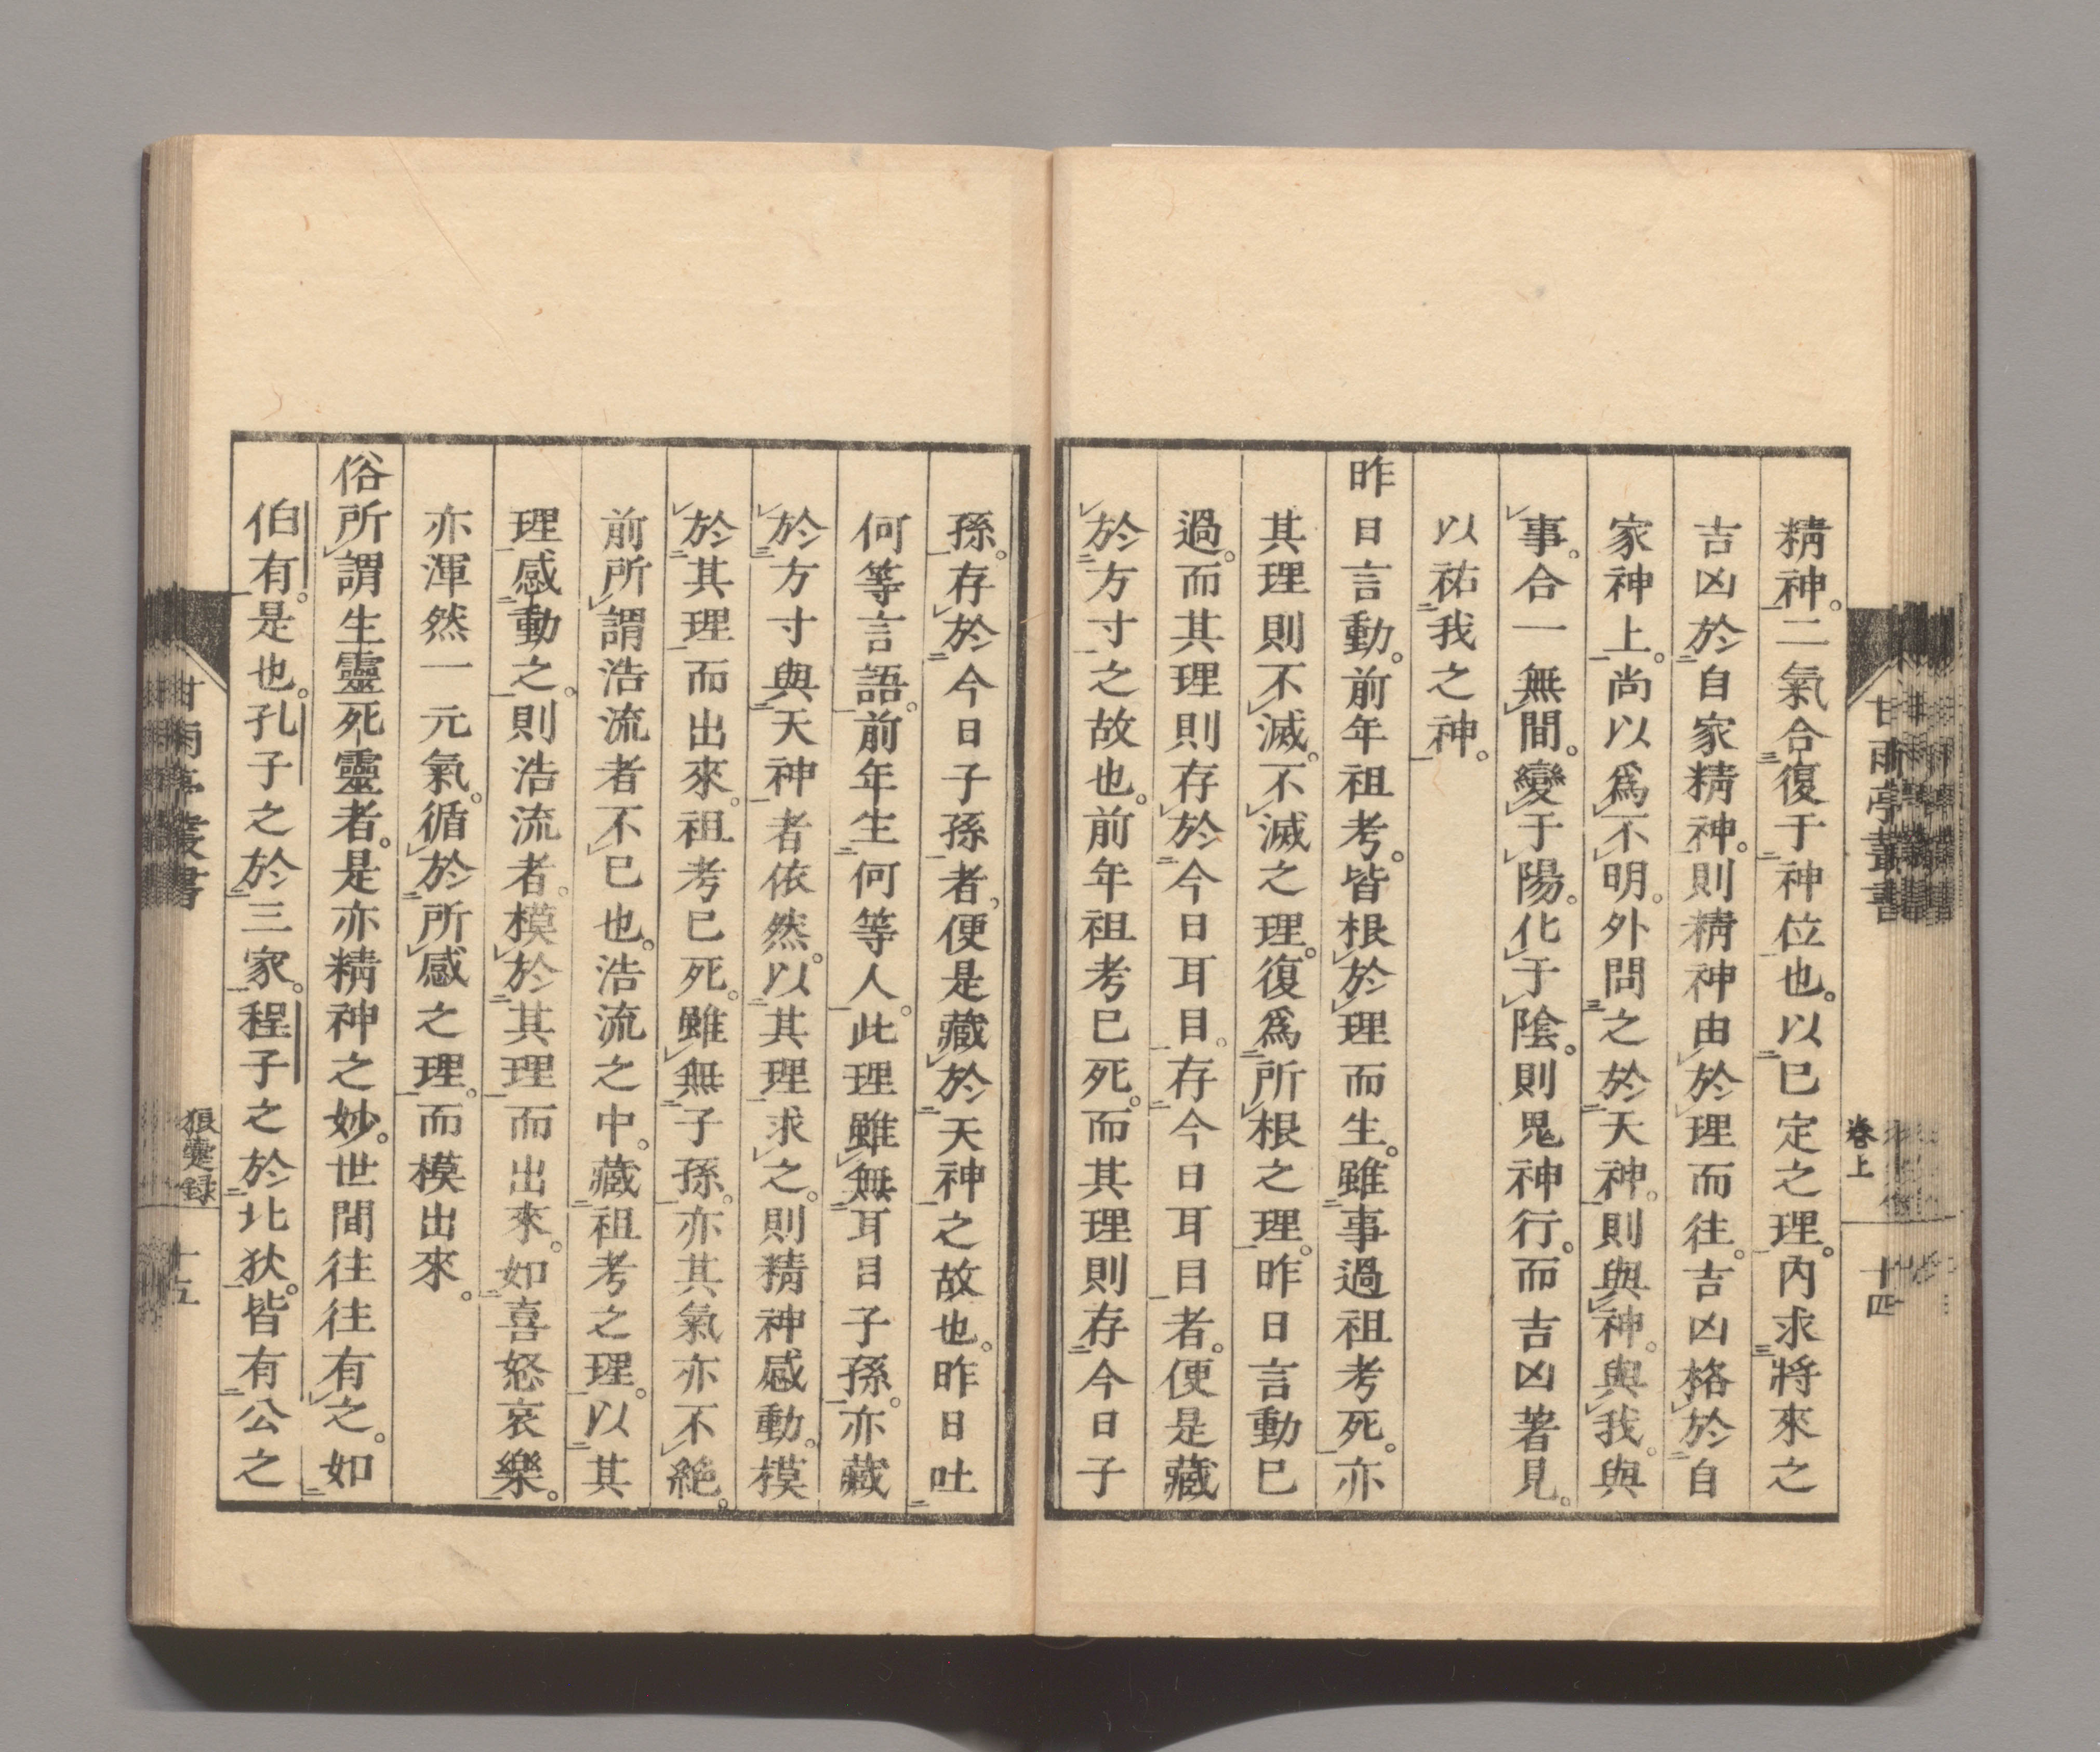 精神。二氣合復于神位也。以已定之理。內求將來之
吉凶於自家精神。則精神由於理而往。吉凶格於自
家神上。尚以爲不明。外問之於天神。則與神。與我。與
事。合一無間。變于陽。化于陰。則鬼神行。而吉凶著見。
以祐我之神。
昨日言動。前年祖考。皆根於理而生。雖事過祖考死。亦
其理則不滅。不滅之理。復爲所根之理。昨日言動已
過。而其理則存於今日耳目。存今日耳目者。便是藏
於方寸之故也。前年祖考已死。而其理則存今日子
甘雨亭叢書
卷上
十四
孫。存於今日子孫者、便是藏於天神之故也。昨日吐
何等言語。前年生何等人。此理雖無耳目子孫。亦藏
於方寸與天神者依然。以其理求之。則精神感動。模
於其理而出來。祖考已死。雖無子孫。亦其氣亦不絕。
前所謂浩流者不已也。浩流之中。藏祖考之理。以其
理感動之。則浩流者。模於其理而出來。如喜怒哀樂。
亦渾然一元氣。循於所感之理。而模出來。
俗所謂生靈死靈者。是亦精神之妙。世間往往有之。如
伯有。是也。孔子之於三家。程子之於北狄。皆有公之
甘雨亭叢書
狼疐録
十五